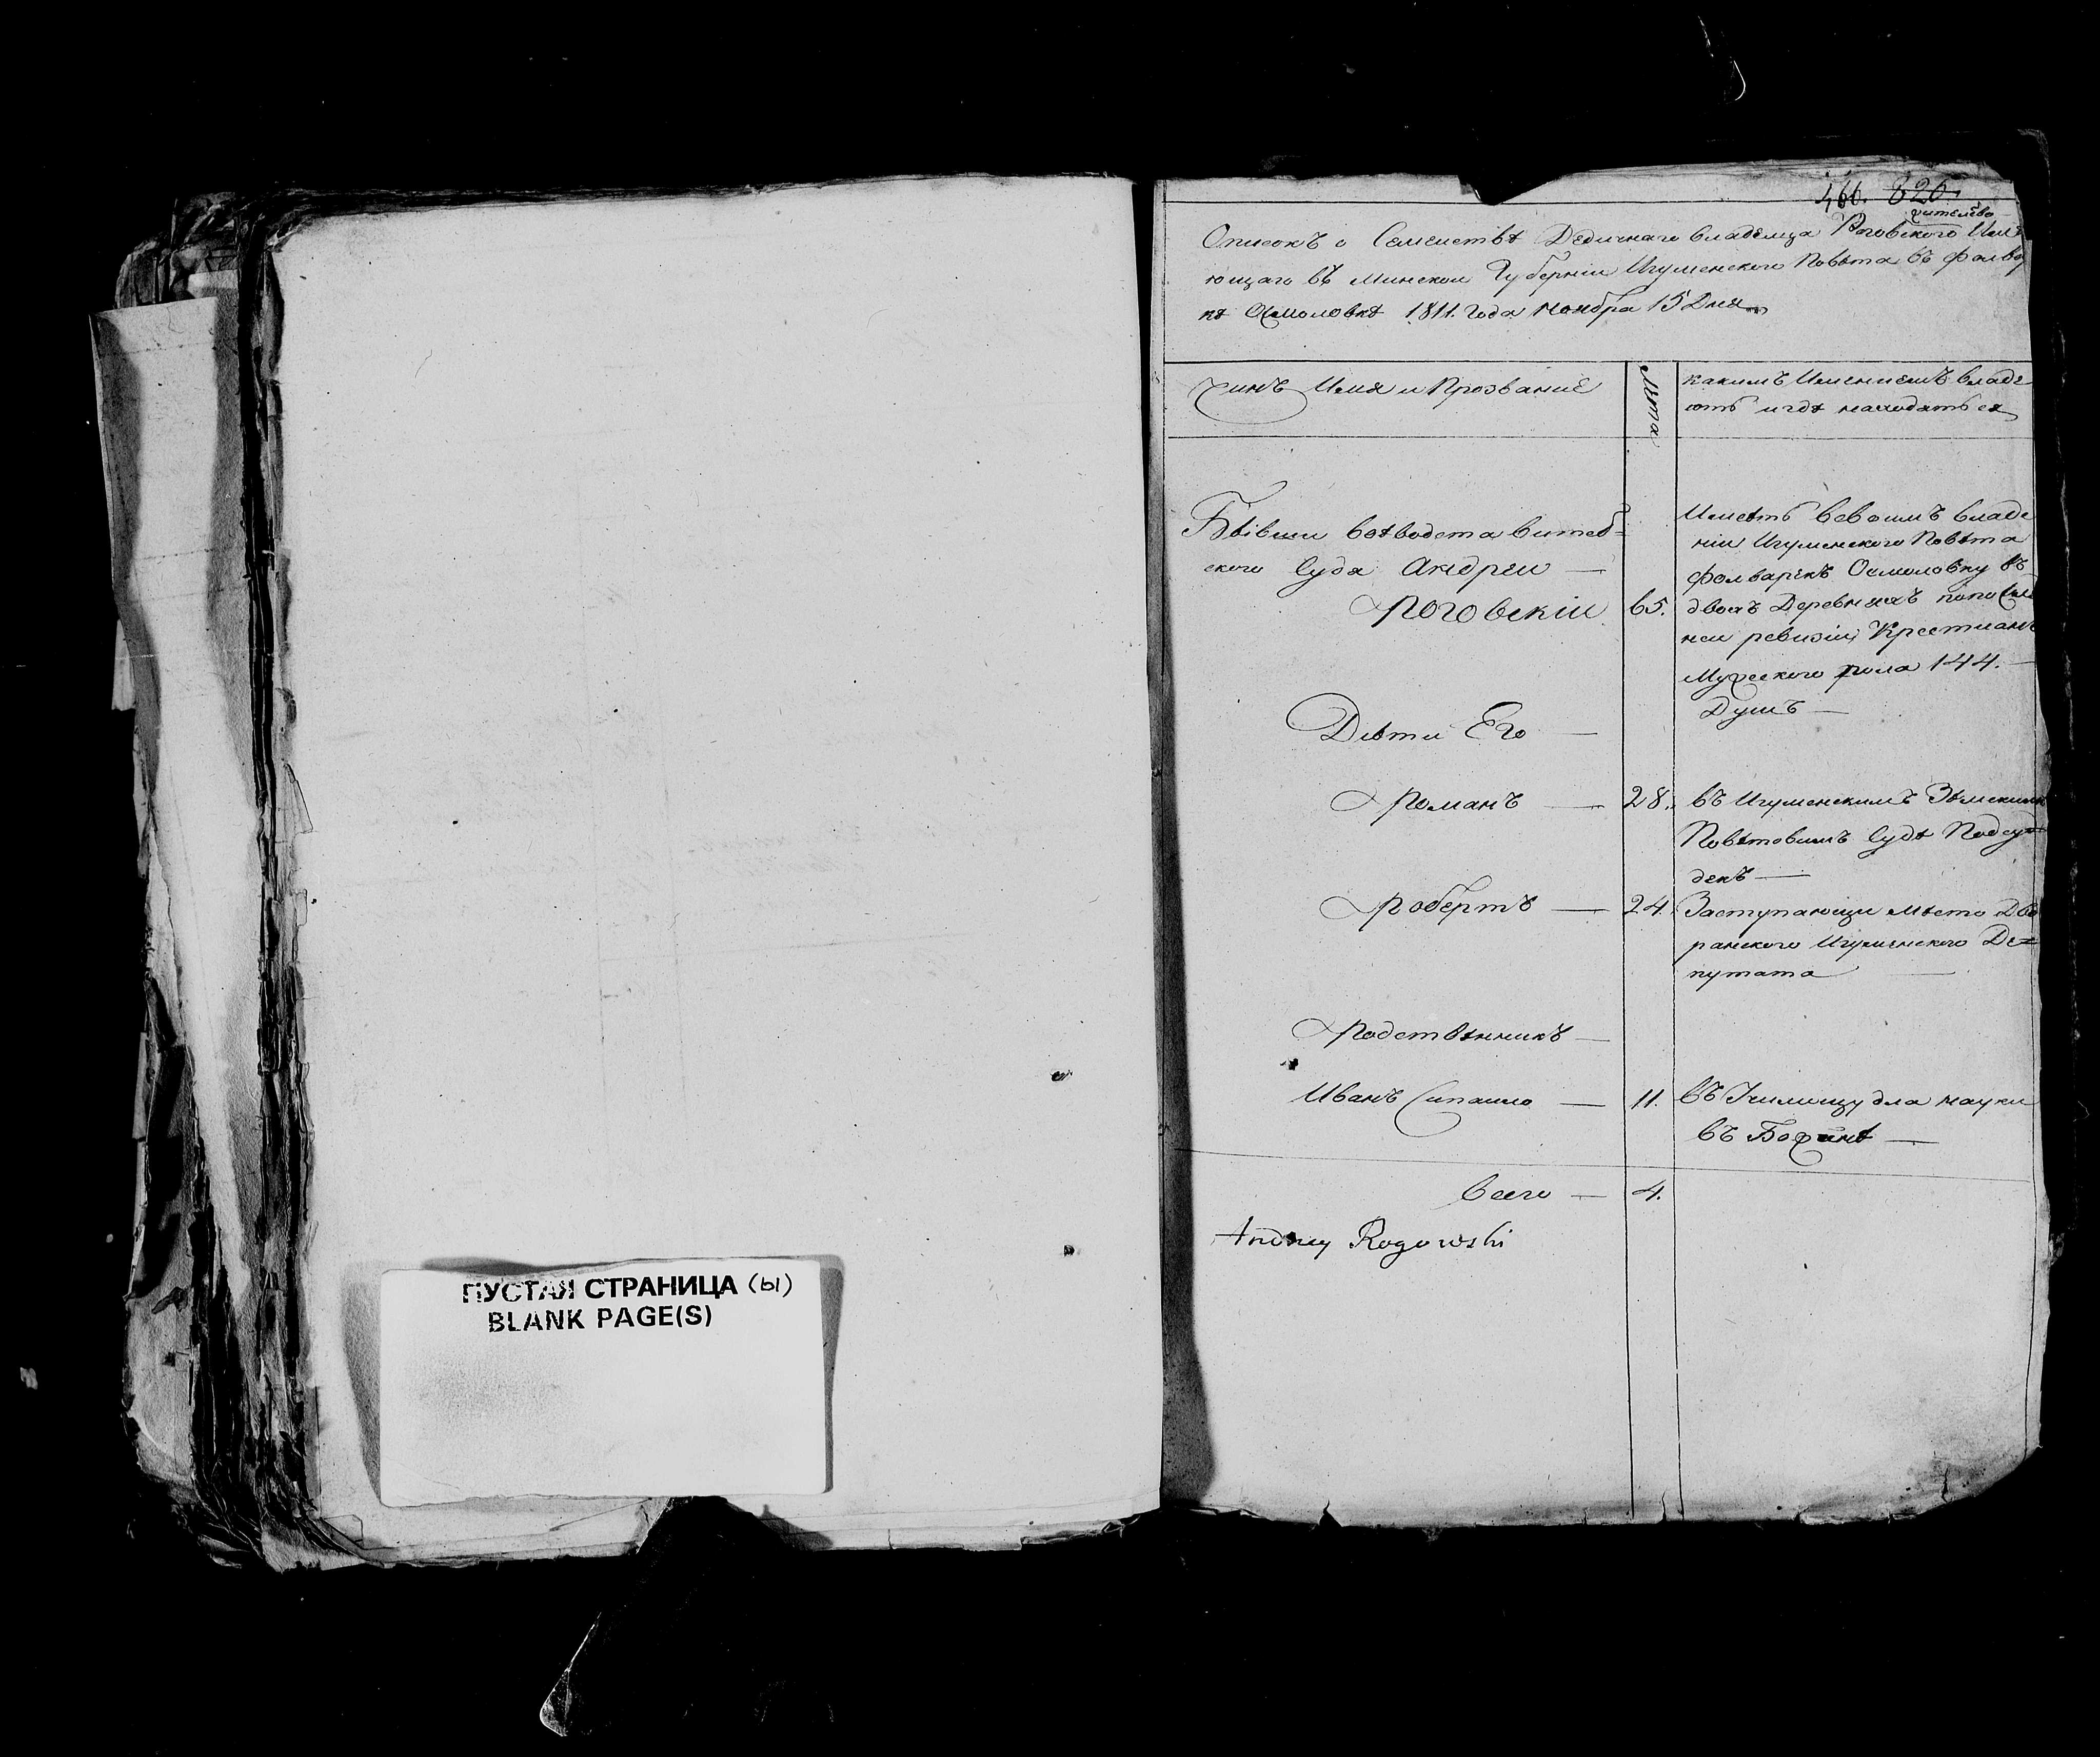 ПУСТАЯ СТРАНИЦА (ы)
BLANK PAGE(S)
460. 820.
жителство
Списокъ о Семействѣ Дедичнаго владѣлца Роговского Имѣ
ющаго въ Минской Губернiи Игуменского Повѣта въ Фолвар
кѣ Осмоловкѣ 1811. года Ноября 15 Дня
Чинъ Имя и Прозванiе
Лѣта
какимъ Именiемъ владе
ютъ и гдѣ находятъся
Бывши воѣводства витеб=
ского Судя Андреи —
Роговскiи
65.
Имѣетъ въ своимъ владе
нiи Игуменского Повѣта
Фолваркъ Осмоловку въ
двохъ Деревняхъ по послѣд
неи ревизiи Крестианъ
Мужеского пола 144. —
Душъ —
Дѣти Его —
Романъ — 28.
въ Игуменскимъ Земскимъ
Повѣтовимъ Судѣ Подсу=
декъ —
Робертъ — 24.
Заступающи мѣсто Дво
ранского Игуменского Де=
путата —
Родствѣнникъ —
Иванъ Сипаило — 11.
въ Училищу для науки
въ —
Всего — 4.
Andrzey Rogowski